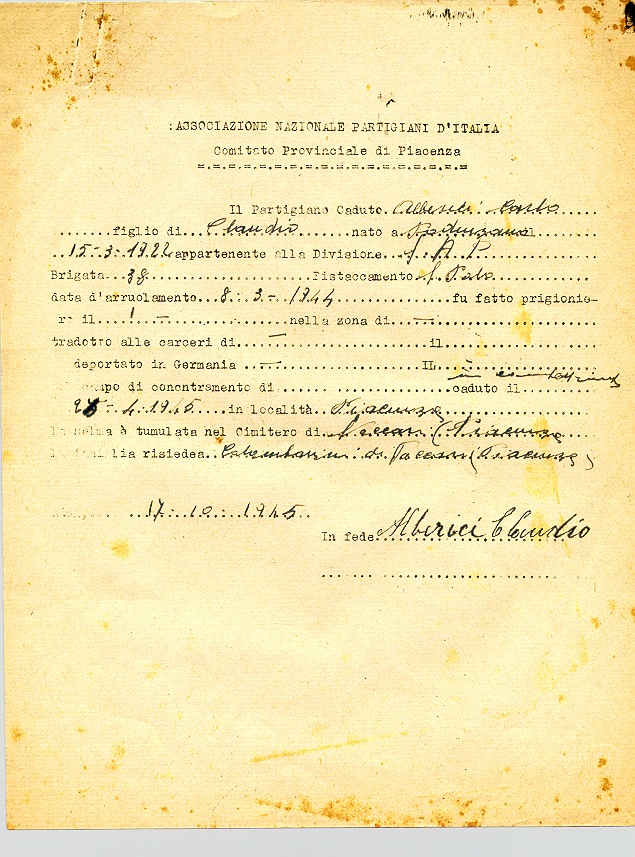 ASSOCIAZIONE NAZIONALE PARTIGIANI D'ITALIA
Comitato Provinciale di Piacenza
=.=.=.=.=.=.=.=.=.=.=.=.=.=.=.=.=.=
Il Partigiano Caduto. Alberici Carlo
figlio di Claudio nato a
15-3-1922 appartenente alla Divisione S A P
Brigata 38 Distaccamento S. Polo
data d'arruolamento 8-3-1944 fu fatto prigionie-
ro il - nella zona di -
tradotto alle carceri di - il
deportato in Germania - IL
campo di concntramento di caduto il in combattimento
-4.1945 in località Piacenza
la salma è tumulata nel Cimitero di (Piacenza
la famiglia risiedea di (Piacenza)
17.10.1945
In fede Alberici Claudio